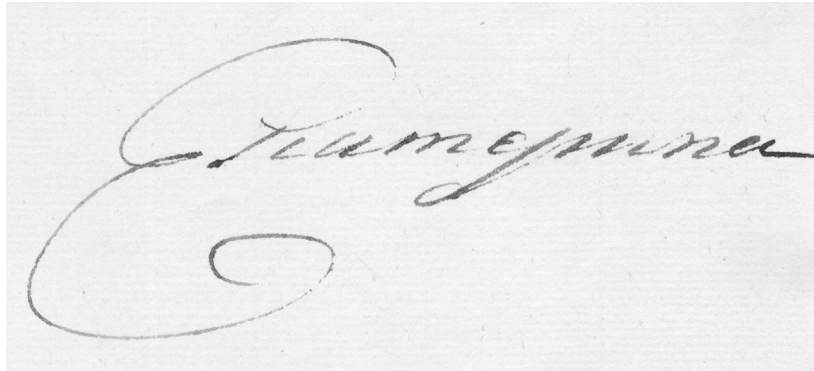 Екатерина